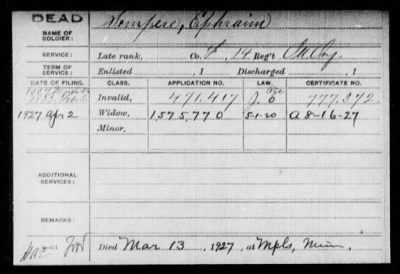 DEAD
NAME OF SOLDIER:
Dempere, Ephraim
SERVICE:
Late rank, Co. F, 14 Reg't Ind Cav.
TERM OF SERVICE:
Enlisted , 1 Discharged , 1
DATE OF FILING. CLASS. APPLICATION NO. LAW. CERTIFICATE NO.
Invalid, 471.417 777.372
1927 Apr 2 Widow, 1575770 5-1-20 A 8-16-27
Minor,
ADDITIONAL SERVICES:
REMARKS:
Died Mar 13, 1927, at Mpls, Minn.